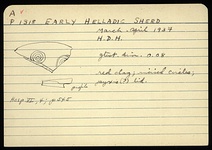 A
P 1318 EARLY HELLADIC SHERD
March-April 1937
H.D.H.
gtest. dim. 0.08
red clay; incised circles;
pyxis(?) lid.
profile
fig. 545